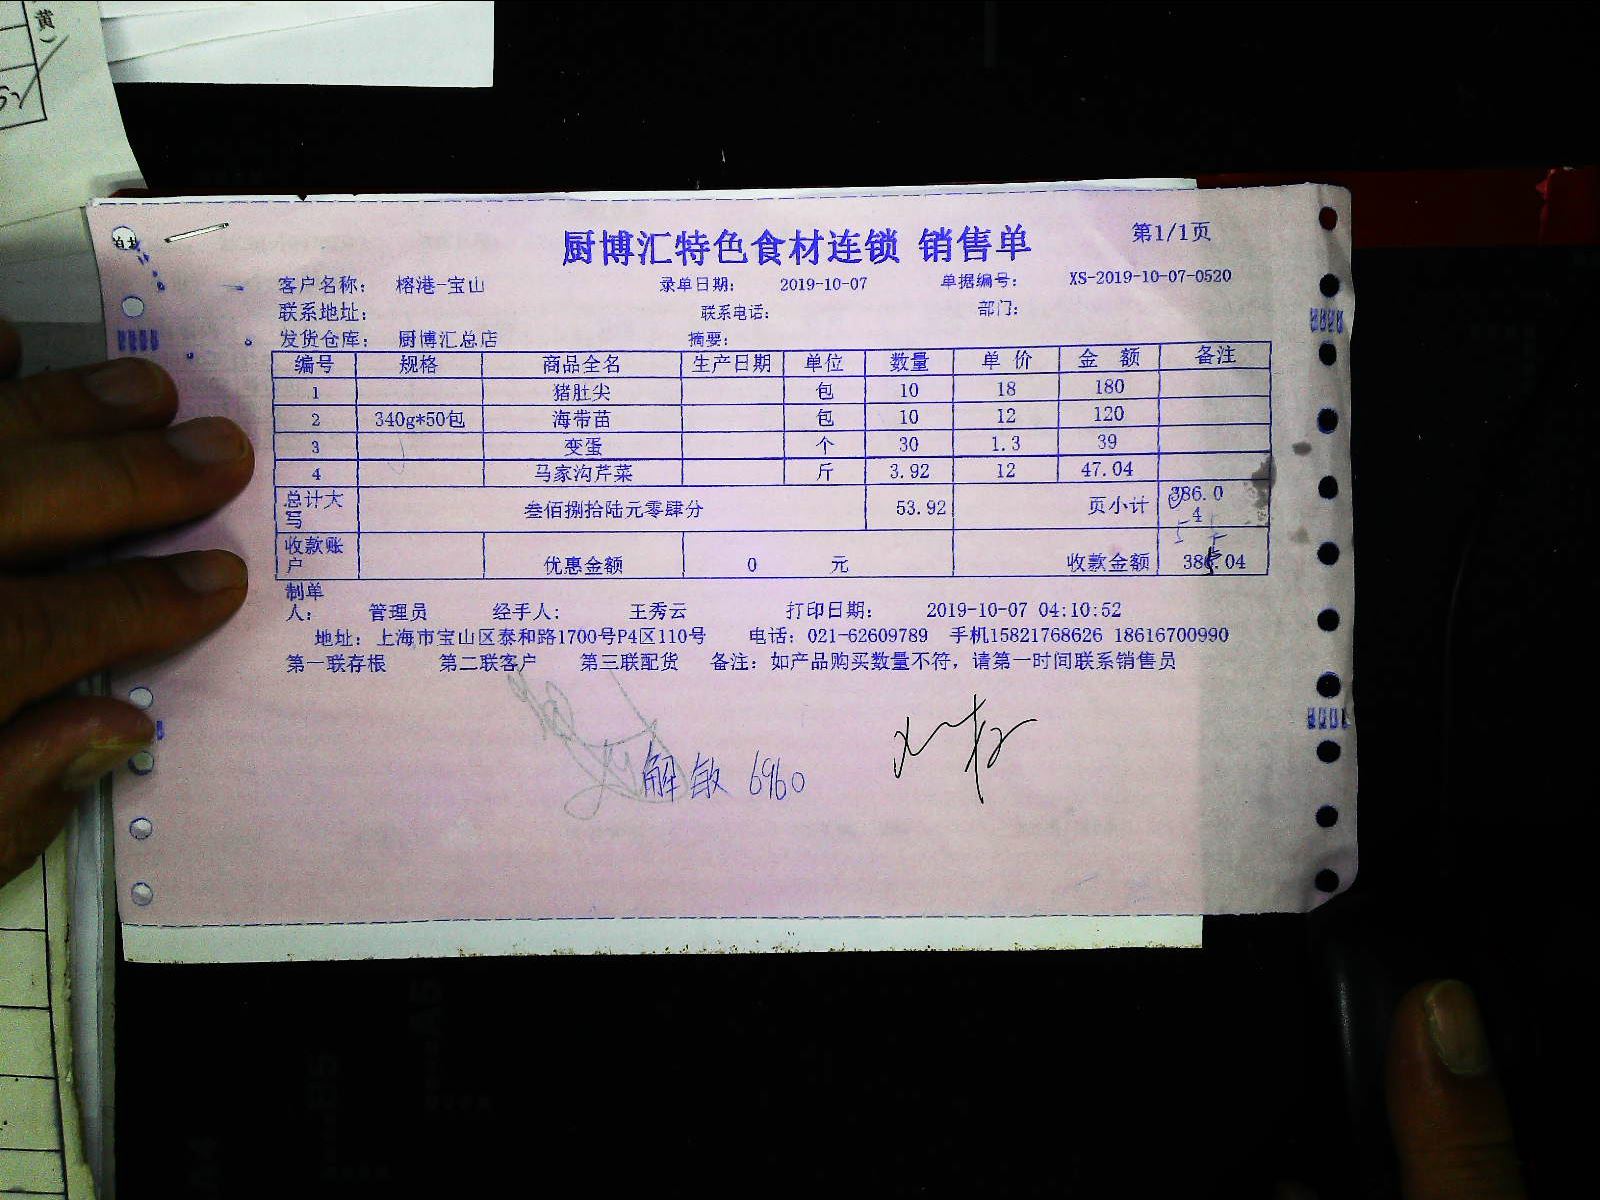 黄)
厨博汇特色食材连锁 销售单 第1/1页
客户名称: 榕港-宝山 录单日期: 2019-10-07 单据编号: XS-2019-10-07-0520
联系地址: 联系电话: 部门:
发货仓库: 厨博汇总店 摘要:
编号 规格 商品全名 生产日期 单位 数量 单 价 金 额 备注
1 猪肚尖 包 10 18 180
2 340g*50包 海带苗 包 10 12 120
3 变蛋 个 30 1.3 39
4 马家沟芹菜 斤 3.92 12 47.04
总计大写 叁佰捌拾陆元零肆分 53.92 页小计 386.04
收款账户 优惠金额 0 元 收款金额 386.04
制单人: 管理员 经手人: 王秀云 打印日期: 2019-10-07 04:10:52
地址: 上海市宝山区泰和路1700号P4区110号 电话: 021-62609789 手机15821768626 18616700990
第一联存根 第二联客户 第三联配货 备注: 如产品购买数量不符,请第一时间联系销售员
解敏 6960